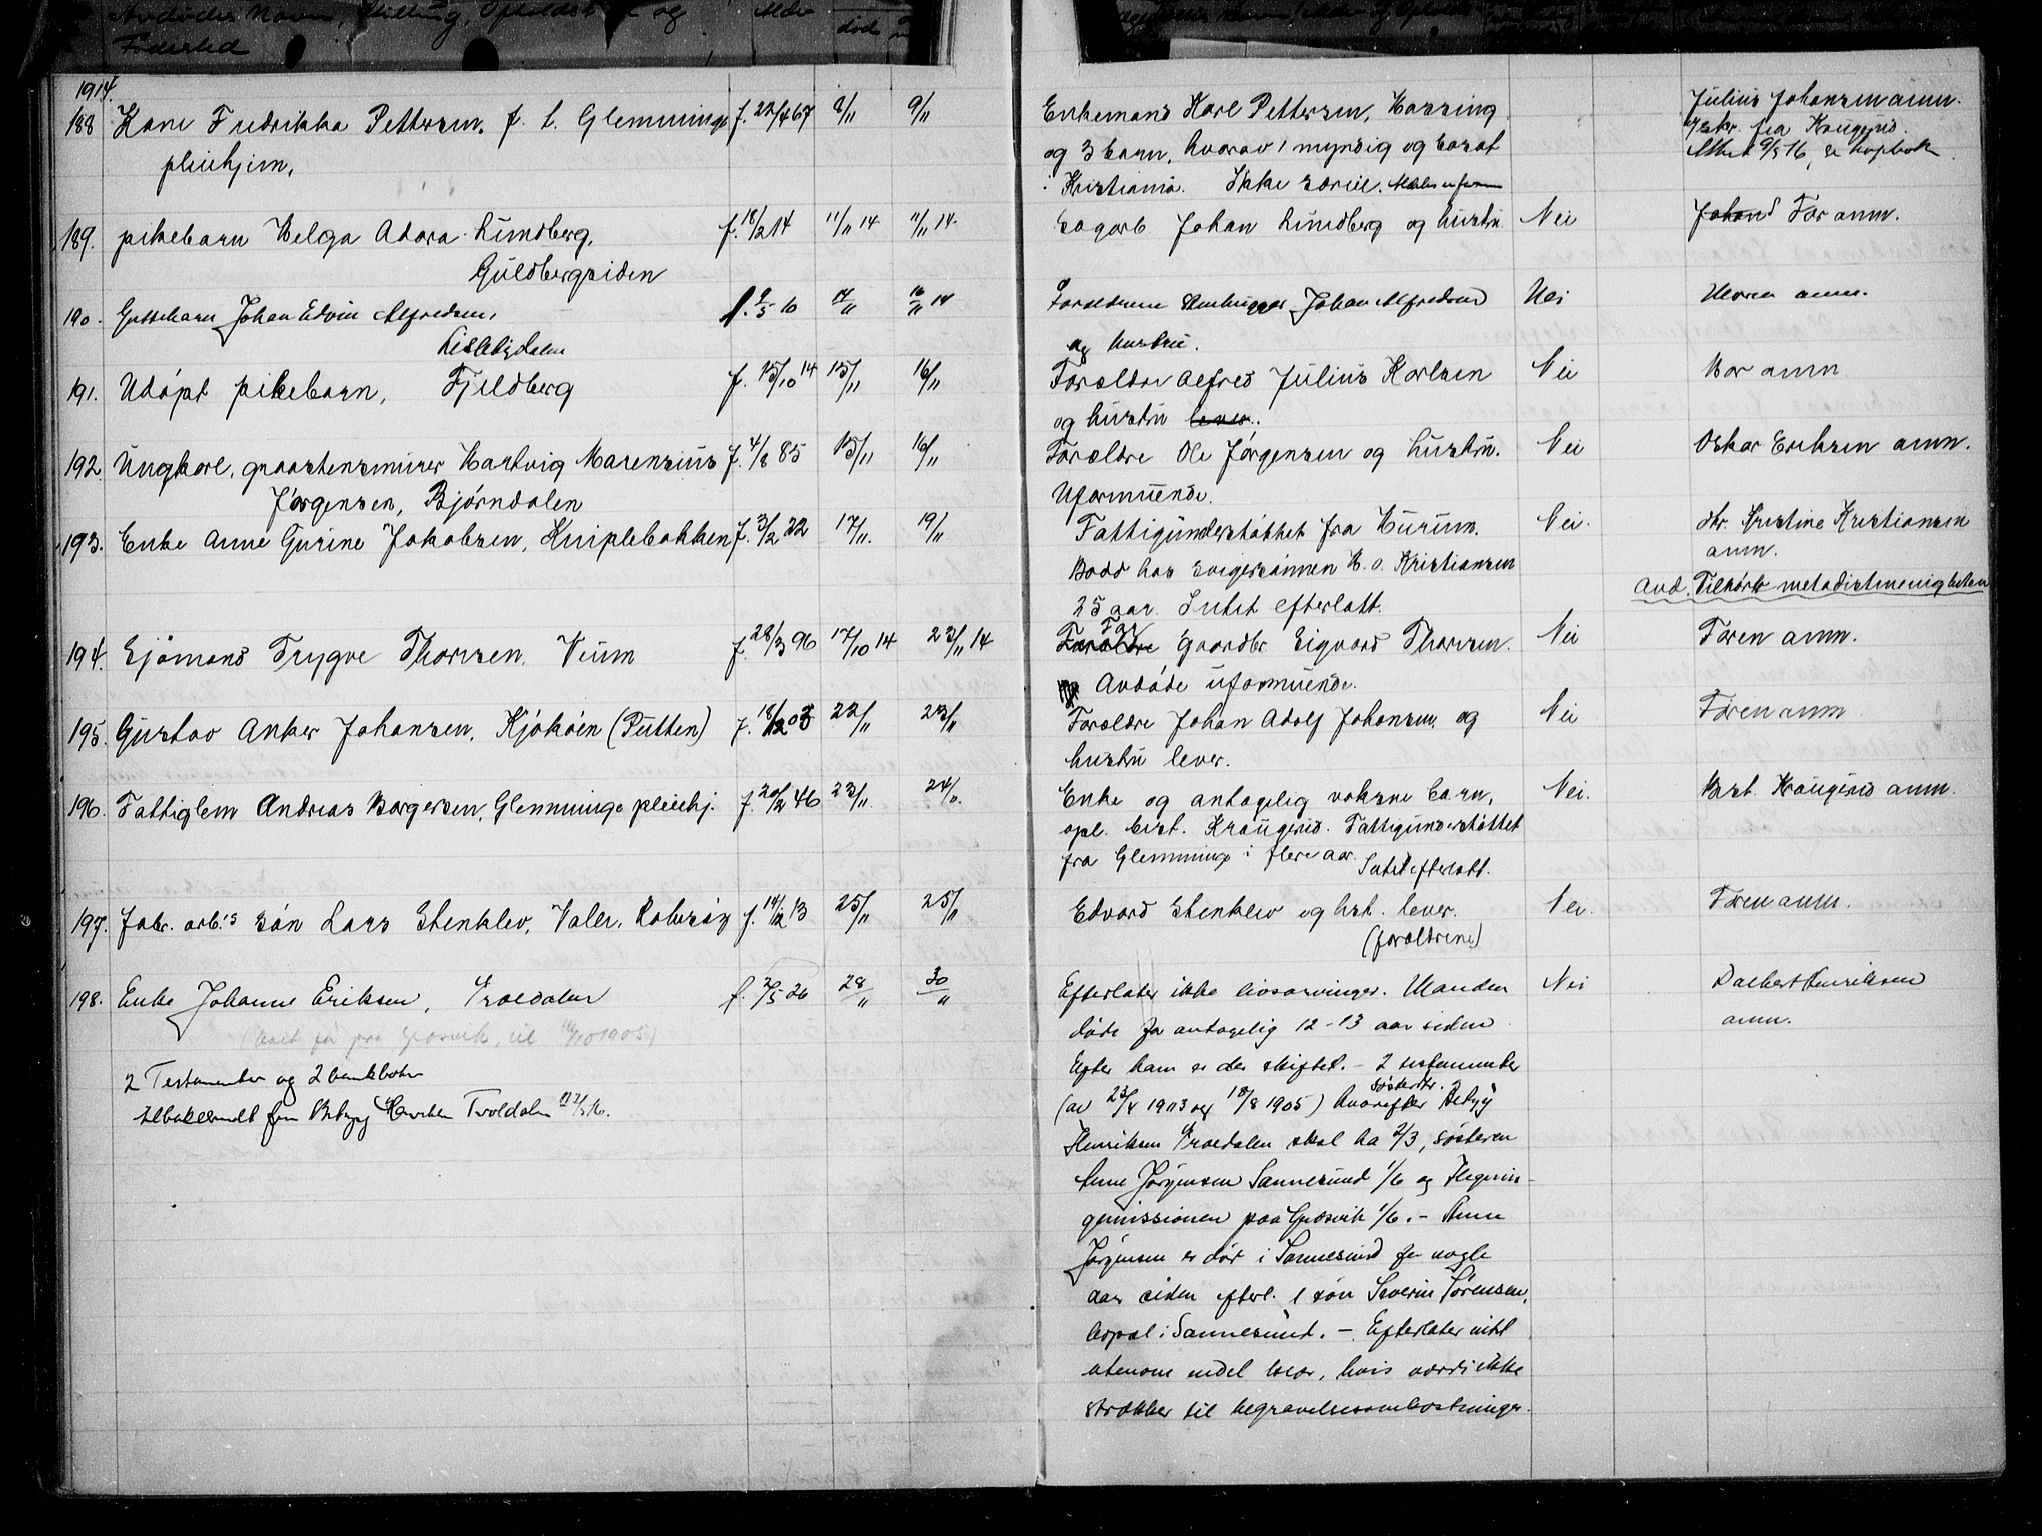 Avdødes Navn, Stilling, Opholdssted og
Fødested
død
1914.
188 Kone Fredrikka Pettersen, f. L. Glemminge f. 22/4 67 8/11 9/11
pleiehjem,
Enkemand Karl Pettersen,
og 3 barn, hvorav 1 myndig og bosat
i Kristiania. Ikke særeie.
Julius Johansen anm.
fra Kraugerud.
9/5 16, se kopbok
189. pikebarn Helga Adora Lundberg, f. 18/2 14 11/11 14 11/11 14
Guldbergsiden
Sagarb. Johan Lundberg og hustru Nei Far anm.
190. Guttebarn Johan Edvin Alfredsen, f. 9/5 10 14/11 16/11 14
Lislebydalen
Forældrene Johan Alfredsen Nei Moren anm.
og hustru.
191. Udøpt pikebarn, Fjeldberg f. 15/10 14 15/11 16/11
Forældre Alfred Julius Karlsen Nei Mor anm
og hustru lever.
192. Ungkarl, graastensmurer Hartvig Marensius f. 4/8 85 15/11 16/11
Jørgensen, Bjørndalen
Forældre Ole Jørgensen og hustru. Nei Oskar Eriksen anm.
Uformuende.
193. Enke Anne Gurine Jakobsen, Kniplebakken f. 3/2 22 17/11. 19/11
Fattigunderstøttet fra Hurum. Nei. Fr. Kristine Kristiansen
anm.
Bodd hos svigersønnen H. O. Kristiansen
And. Tilhørte metodistmenigheten
25 aar. Intet efterlatt.
194. Sjømand Trygve Thorsen, Veum f. 28/3 96 17/10 14 23/11 14
Far
Forældre gaardbr Sigvard Thorsen. Nei Faren anm.
Avdøde uformuende.
195. Gustav Anker Johansen, Kjøkøen (Putten) f. 18/12 03 22/11 23/11
Forældre Johan Adolf Johansen og Nei Faren anm
hustru lever.
196. Fattiglem Andreas Borgersen, Glemminge pleiehj. f. 20/2 46 23/11. 24/11.
Enke og antagelig voksne barn, Nei. Best. Kraugerud anm.
opl. best. Kraugerud. Fattigunderstøttet
fra Glemminge i flere aar. Intet efterlatt.
197. Fabr. arb.'s søn Lars Stenklev, Valer, Rolvsøy f. 14/12 13 25/11 25/11
Edvard Stenklev og hst. lever. Nei. Faren anm.
(forældrene)
198. Enke Johanne Eriksen, Troedalen f. 2/5 26 28/11 30/11
Efterlater ikke livsarvinger. Manden Nei Dalbert Henriksen
døde for antagelig 12-13 aar siden anm.
Efter ham er der skiftet. - 2 testamenter
(av 23/4 1903 og 18/8 1905) hvorefter Betzy
Henriksen Troedalen skal ha 2/3, søsteren
Anne Jørgensen Sannesund 1/6 og Hegnin-
gemissionen paa Græsvik 1/6. - Anne
Jørgensen er død i Sannesund for nogle
aar siden efterl. 1 søn Severin Sørensen,
bopæl i Sannesund. - Efterlater intet
utenom endel løsøre, hvis værdi ikke
strækker til begravelsesomkostninger.
2 Testamenter og 2 bankbøker
tilbakesendt frøken Betzy Henriksen Troedalen